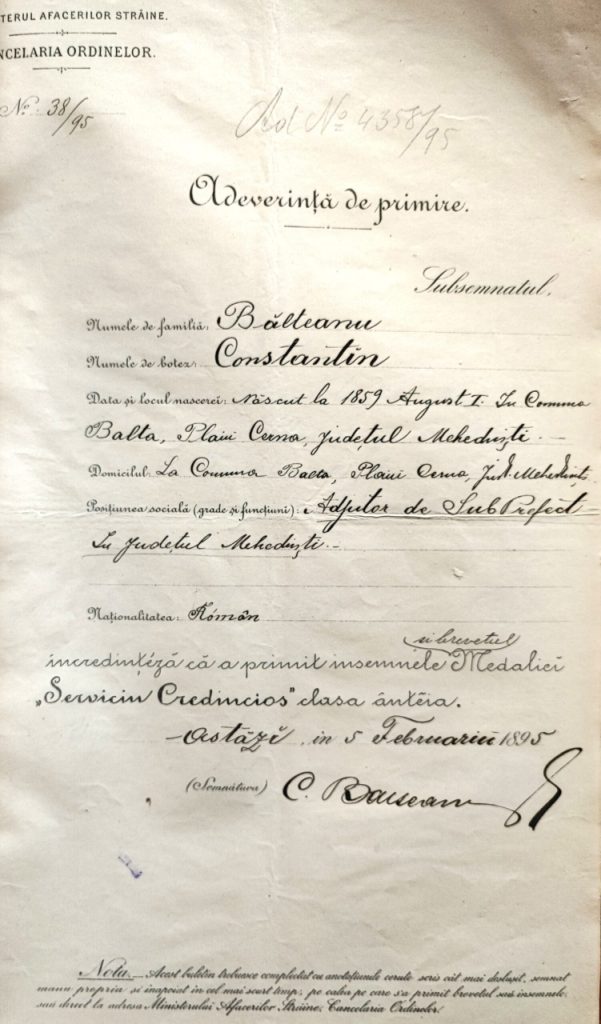 TERUL AFACERILOR STRĂINE.
NCELARIA ORDINELOR.
No. 38/95
Ad No 4358/95
Adeverință de primire.
Subsemnatul,
Numele de familiă: Bălteanu
Numele de botez: Constantin
Data și locul nascerei: Născut la 1859 August I. In Comuna
Balta, Plaiu Cerna, județul Mehedinți.-
Domicilul: La Comuna Balta, Plaiu Cerna, Jud. Mehedinți
Pozițiunea socială (grade și funcțiuni): Adjutor de SubPrefect
In Județul Mehedinți.-
Naționalitatea: Român
și brevetul
incredințéză că a primit insemnele Medaliei
„Serviciu Credincios" clasa ântêia.
Astăzĭ, in 5 Februariŭ 1895
(Semnătura) C. Balteanu
Nota.— Acest buletin trebuesce complectat cu anotațiunile cerute, scris cât mai deslușit, semnat
manu propria și inapoiat in cel mai scurt timp, pe calea pe care s'a primit brevetul sau insemnele,
sau direct la adresa Ministerului Afacerilor Străine, Cancelaria Ordinelor.